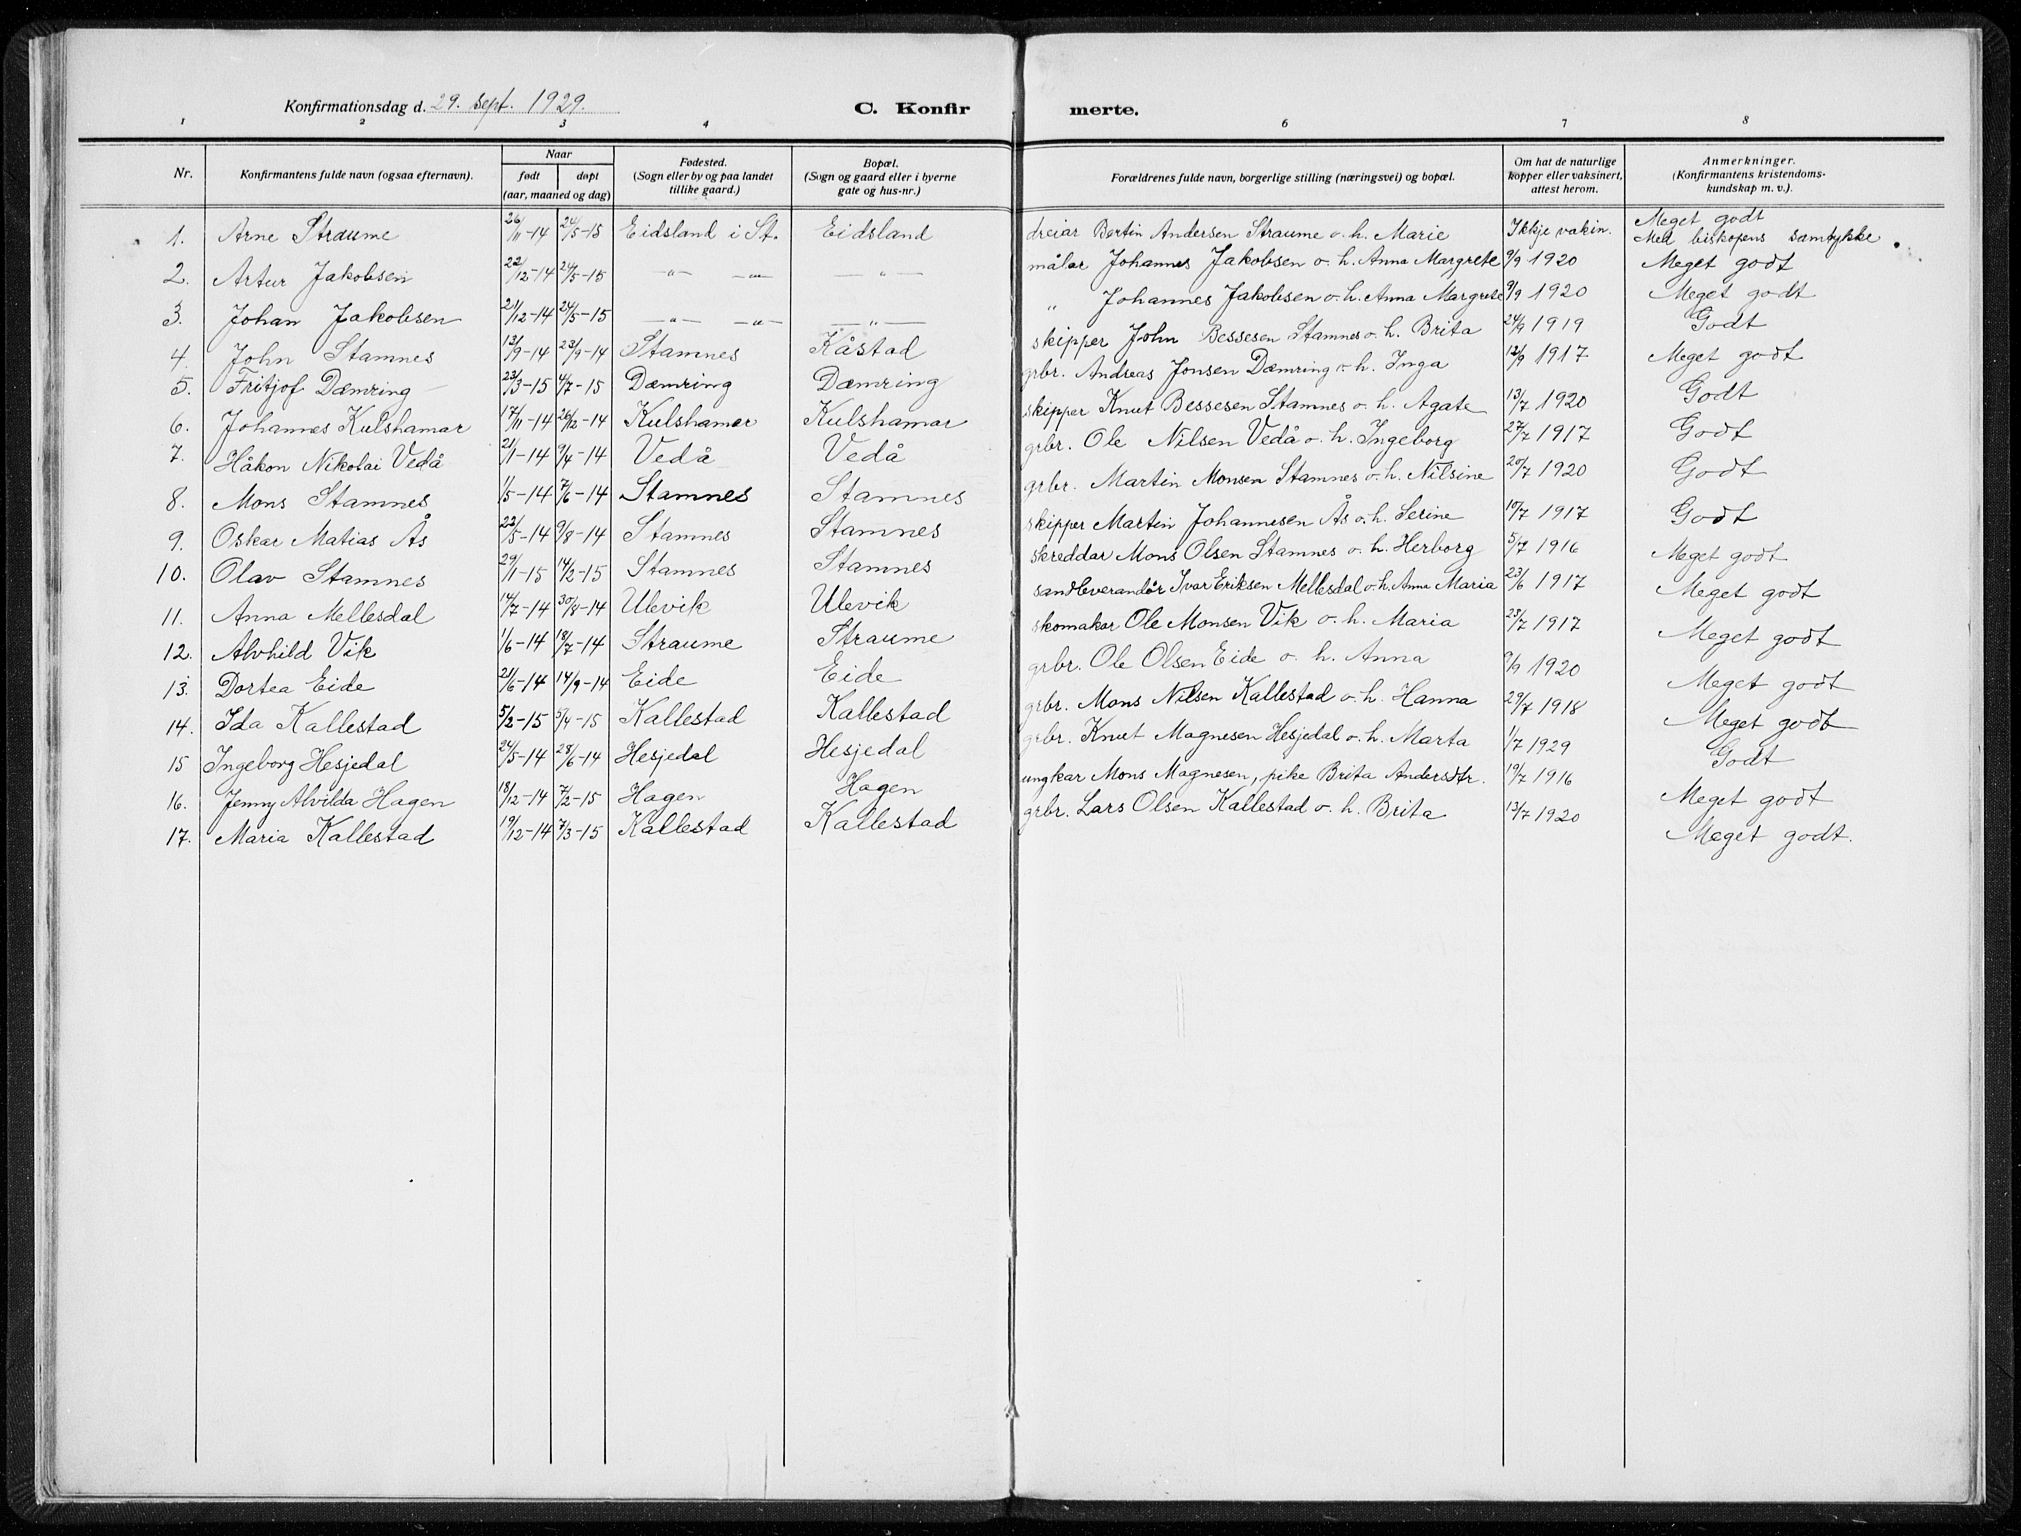 Konfirmationsdag d. 29. sept. 1929. C. Konfirmerte.
1 2 3 4 6 7 8
Nr. Konfirmantens fulde navn (ogsaa efternavn). Naar født døpt (aar, maaned og dag) Fødested. (Sogn eller by og paa landet tillike gaard.) Bopæl. (Sogn og gaard eller i byerne gate og hus-nr.) Forældrenes fulde navn, borgerlige stilling (næringsvei) og bopæl. Om hat de naturlige kopper eller vaksinert, attest herom. Anmerkninger. (Konfirmantens kristendoms-kundskap m. v.).
1. Arne Straume 26/11-14 24/5-15 Eidsland i St. Eidsland dreiar Bertin Andersen Straume o. h. Marie Ikkje vakin. Meget godt Med biskopens samtykke.
2. Artur Jakobsen 22/12-14 24/5-15 —"— —"— —"— målar Johannes Jakobsen o. h. Anna Margrete 9/9 1920 Meget godt
3. Johan Jakobsen 21/12-14 24/5-15 —"— —"— —"— " Johannes Jakobsen o. h. Anna Margrete 9/9 1920 Meget godt
4. John Stamnes 13/9-14 23/9-14 Stamnes Kåstad skipper John Bessesen Stamnes o. h. Brita 24/9 1919 Godt
5. Fritjof Dæmring 23/3-15 4/7-15 Dæmring Dæmring grbr. Andreas Jonsen Dæmring o. h. Inga 12/9 1917 Meget godt
6. Johannes Kulshamar 17/11-14 26/12-14 Kulshamar Kulshamar skipper Knut Bessesen Stamnes o. h. Agate 13/7 1920 Godt
7. Håkon Nikolai Vedå 21/1-14 9/4-14 Vedå Vedå grbr. Ole Nilsen Vedå o. h. Ingeborg 27/7 1917 Godt
8. Mons Stamnes 1/5-14 7/6-14 Stamnes Stamnes grbr. Martin Monsen Stamnes o. h. Nilsine 20/7 1920 Godt
9. Oskar Matias Ås 22/5-14 9/8-14 Stamnes Stamnes skipper Martin Johannesen Ås o. h. Serine 10/7 1917 Godt
10. Olav Stamnes 29/1-15 14/2-15 Stamnes Stamnes skreddar Mons Olsen Stamnes o. h. Herborg 5/7 1916 Meget godt
11. Anna Mellesdal 14/7-14 30/8-14 Ulevik Ulevik sandleverandör Ivar Eriksen Mellesdal o. h. Anna Maria 23/6 1917 Meget godt
12. Alvhild Vik 1/6-14 18/7-14 Straume Straume skomakar Ole Monsen Vik o. h. Maria 23/7 1917 Meget godt
13. Dortea Eide 21/6-14 14/9-14 Eide Eide grbr. Ole Olsen Eide o. h. Anna 9/9 1920 Meget godt
14. Ida Kallestad 5/2-15 5/4-15 Kallestad Kallestad grbr. Mons Nilsen Kallestad o. h. Hanna 29/7 1918 Meget godt
15 Ingeborg Hesjedal 24/5-14 28/6-14 Hesjedal Hesjedal grbr. Knut Magnesen Hesjedal o. h. Marta 1/7 1929 Godt
16. Jenny Alvilda Hagen 18/12-14 7/2-15 Hagen Hagen ungkar Mons Magnesen, pike Brita Andersdtr. 19/7 1916 Meget godt
17. Maria Kallestad 19/12-14 7/3-15 Kallestad Kallestad grbr. Lars Olsen Kallestad o. h. Brita 13/7 1920 Meget godt.